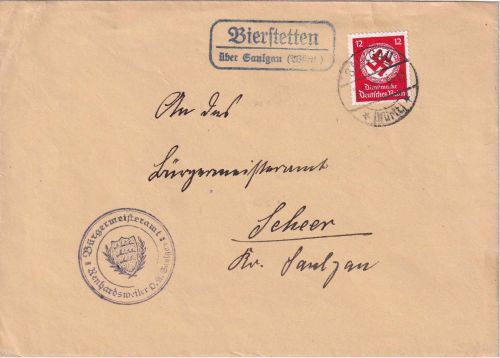 Bierstetten
über Saulgau (Württ.)
12 12
Dienstmarke
Deutsches Reich
(Württ)
An das
Bürgermeisteramt
Scheer
Kr. Saulgau
Bürgermeisteramt
Renhardsweiler O.A. Saulgau